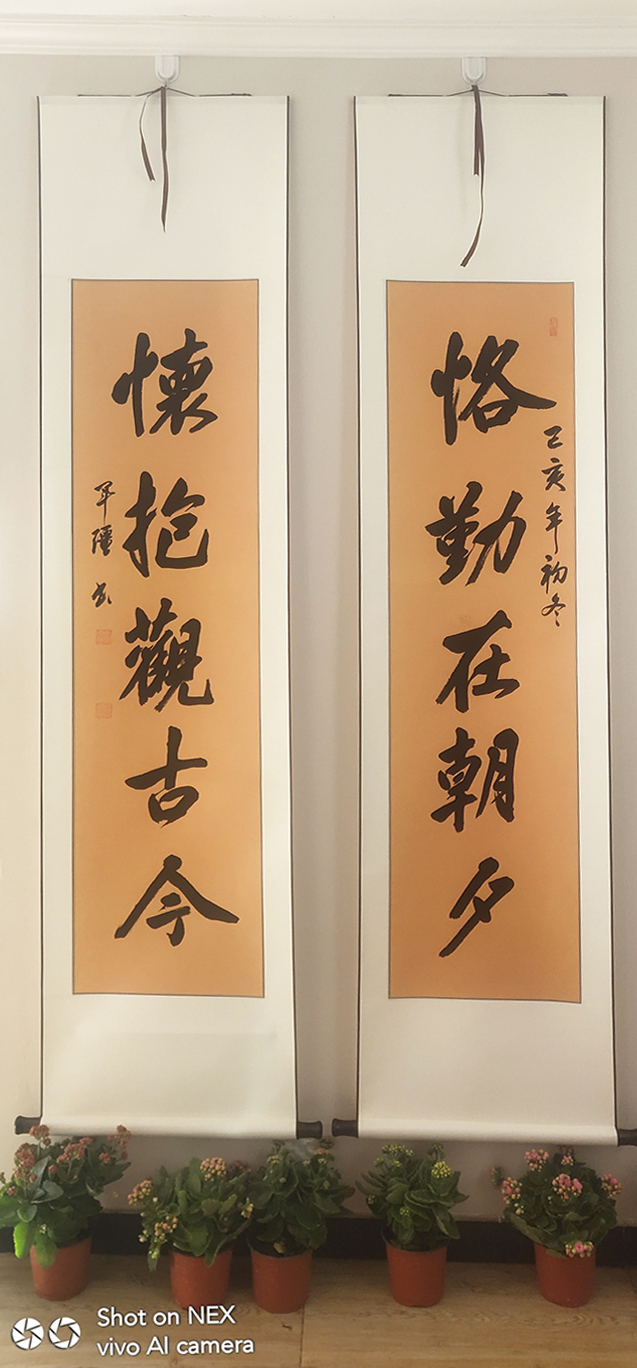 恪勤在朝夕
己亥年初冬
懷抱觀古今
軍疆书
Shot on NEX
vivo AI camera